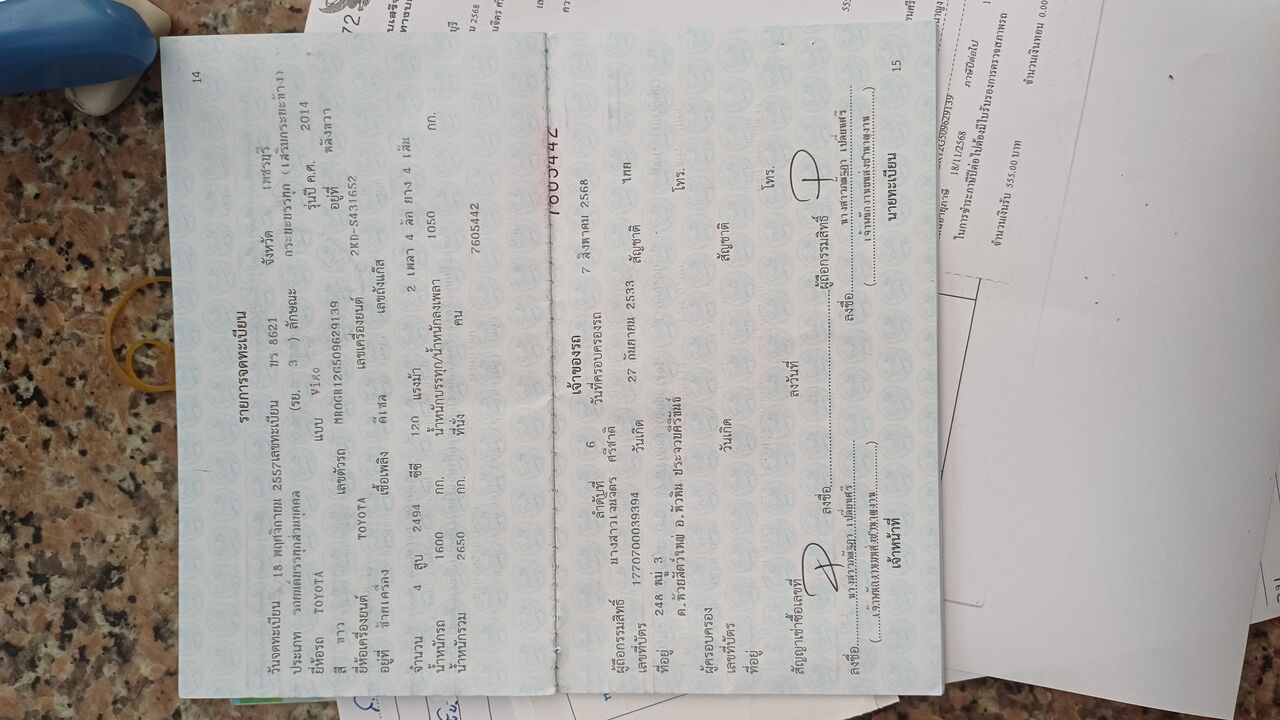 14
รายการจดทะเบียน
วันจดทะเบียน 18 พฤศจิกายน 2557 เลขทะเบียน ขร 8621 จังหวัด เพชรบุรี
ประเภท รถยนต์บรรทุกส่วนบุคคล (รย. 3 ) ลักษณะ กระบะบรรทุก (เสริมกระบะข้าง)
ยี่ห้อรถ TOYOTA แบบ Vigo รุ่นปี ค.ศ. 2014
สี ขาว เลขตัวรถ MR0GR12G509629139 อยู่ที่
ยี่ห้อเครื่องยนต์ TOYOTA เลขเครื่องยนต์ 2KD-S431652
อยู่ที่ ซ้ายเครื่อง เชื้อเพลิง ดีเซล เลขถังแก๊ส
จำนวน 4 สูบ 2494 ซีซี 120 แรงม้า 2 เพลา 4 ล้อ ยาง 4 เส้น
น้ำหนักรถ 1600 กก. น้ำหนักบรรทุก/น้ำหนักลงเพลา 1050 กก.
น้ำหนักรวม 2650 กก. ที่นั่ง คน 7605442
7605442
เจ้าของรถ
ลำดับที่ 6 วันที่ครอบครองรถ 7 สิงหาคม 2568
ผู้ถือกรรมสิทธิ์ นางสาวเจนจิตร ศรีชาติ
เลขที่บัตร 1770700039394 วันเกิด 27 กันยายน 2533 สัญชาติ ไทย
ที่อยู่ 248 หมู่ 3 โทร.
ต.ห้วยสัตว์ใหญ่ อ.หัวหิน ประจวบคีรีขันธ์
ผู้ครอบครอง
เลขที่บัตร วันเกิด สัญชาติ
ที่อยู่ โทร.
สัญญาเช่าซื้อเลขที่ ลงวันที่
ลงชื่อ ผู้ถือกรรมสิทธิ์
ลงชื่อ ลงชื่อ
เจ้าหน้าที่ นายทะเบียน
15
18/11/2568 ภาษีปีต่อไป
ในการชำระภาษีปีต่อไปต้องมีใบรับรองการตรวจสภาพรถ
จำนวนเงินรับ 555.00 บาท จำนวนเงินทอน 0.00